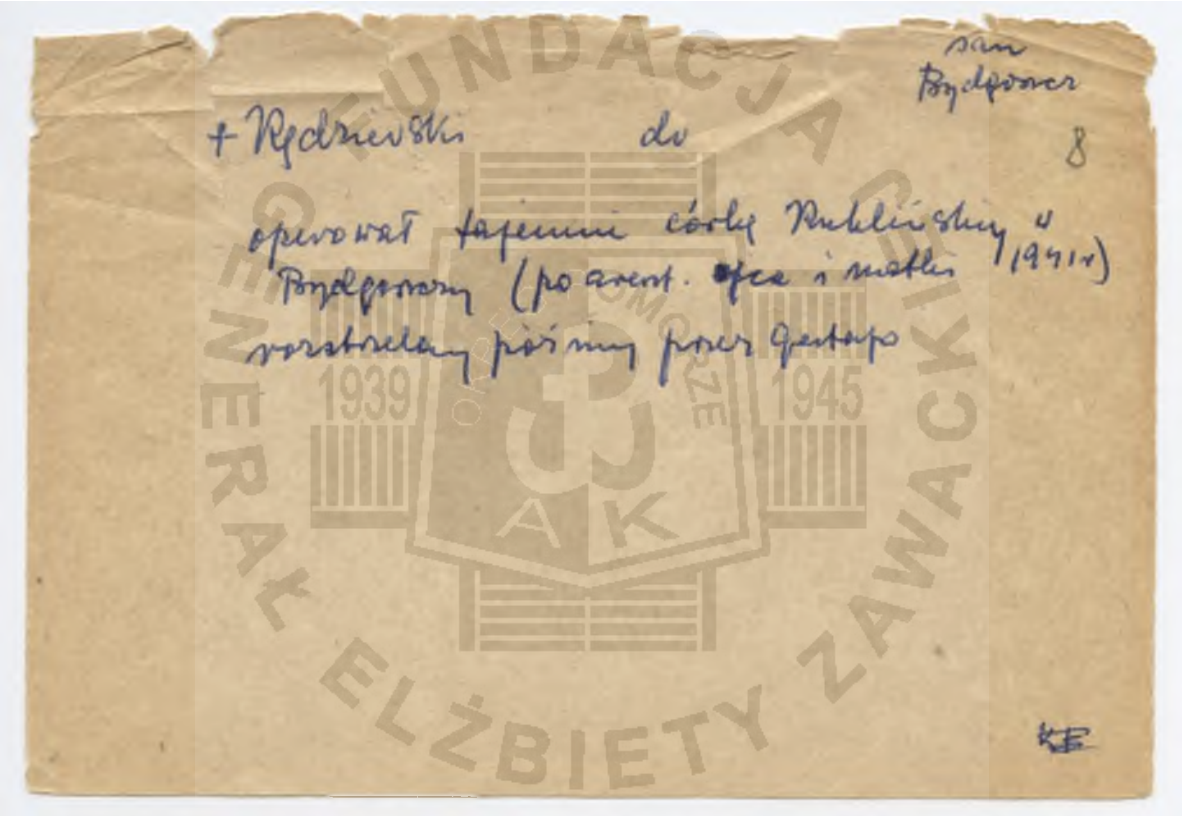 san
Bydgoszcz
+ Kędzierski do
8
operował tajemnie córkę Kuklińskiej w
Bydgoszczy (po areszt. ojca i matki 1941r)
rozstrzelany później przez Gestapo
KE
FUNDACJA GENERAŁ ELŻBIETY ZAWACKIEJ
1939 1945
POMORZE
AK